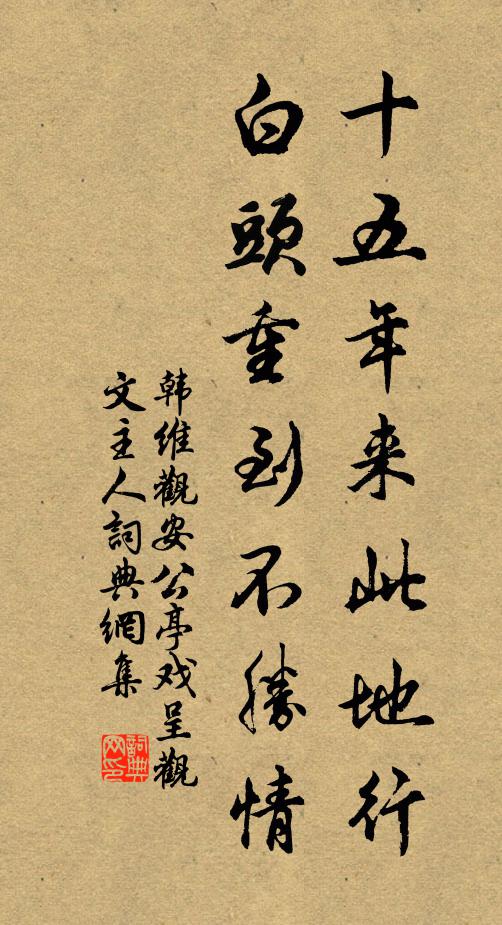 十五年来此地行
白頭重到不勝情
韩維觀安公亭戏呈觀
文主人詞典網集
詞典
网印